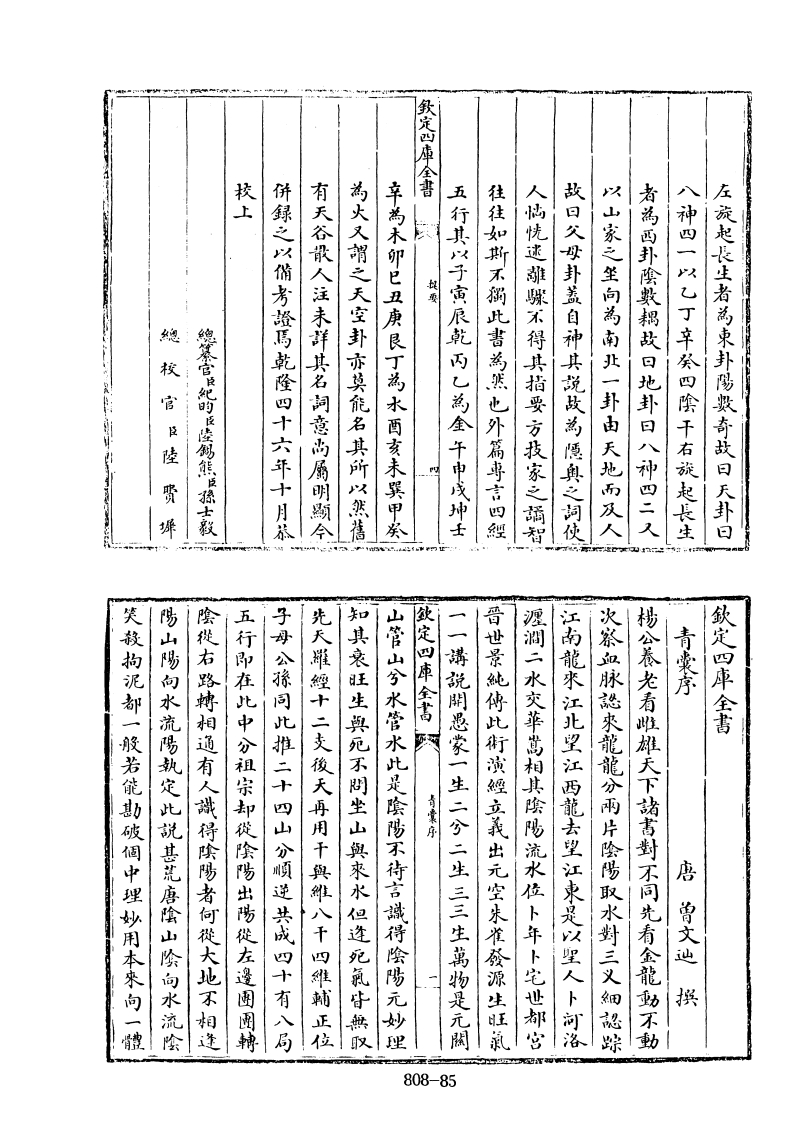 左旋起長生者為東卦陽數奇故曰天卦曰
八神四一以乙丁辛癸四陰干右旋起長生
者為西卦陰數耦故曰地卦曰八神四二又
以山家之坐向為南北一卦由天地而及人
故曰父母卦蓋自神其説故為隱奥之詞使
人惝恍迷離驟不得其指要方技家之譎智
往往如斯不獨此書為然也外篇專言四經
五行其以子寅辰乾丙乙為金午申戌坤壬
欽定四庫全書
提要
四
辛為木卯巳丑庚艮丁為水酉亥未巽甲癸
為火又謂之天空卦亦莫能名其所以然舊
有天谷散人注未詳其名詞意尚屬明顯今
併録之以備考證焉乾隆四十六年十月恭
校上
總纂官臣紀昀臣陸錫熊臣孫士毅
總校官臣陸費墀
欽定四庫全書
青囊序
唐 曾文辿 撰
楊公養老看雌雄天下諸書對不同先看金龍動不動
次察血脉認來龍龍分兩片陰陽取水對三叉細認踪
江南龍來江北望江西龍去望江東是以聖人卜河洛
瀍澗二水交華嵩相其陰陽流水位卜年卜宅世都宫
晉世景純傳此術演經立義出元空朱雀發源生旺氣
一一講説開愚蒙一生二兮二生三三生萬物是元關
欽定四庫全書
青囊序
一
山管山兮水管水此是陰陽不待言識得陰陽元妙理
知其衰旺生與死不問坐山與來水但逢死氣皆無取
先天羅經十二支後天再用干與維八干四維輔正位
子母公孫同此推二十四山分順逆共成四十有八局
五行即在此中分祖宗却從陰陽出陽從左邊團團轉
陰從右路轉相通有人識得陰陽者何從大地不相逢
陽山陽向水流陽執定此説甚荒唐陰山陰向水流陰
笑殺拘泥都一般若能勘破個中理妙用本來向一體
808-85